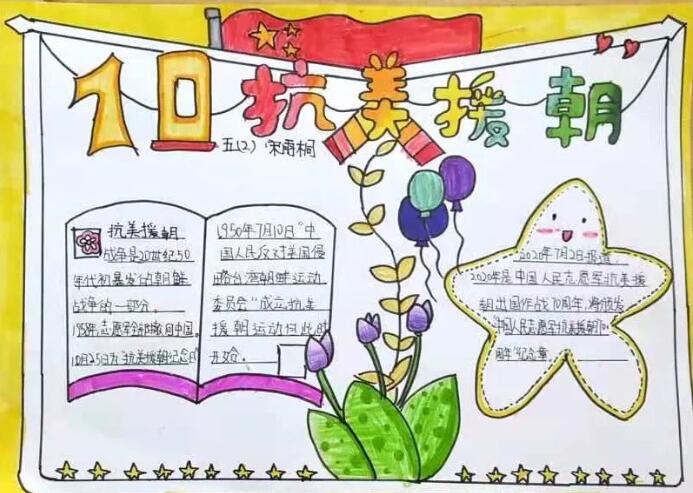 70抗美援朝
五(2) 宋雨桐
抗美援朝
战争是20世纪50
年代初暴发的朝鲜
战争的一部分。
1958年,志愿军全部撤回中国。
10月25日为"抗美援朝纪念日"
1950年7月10日"中
国人民反对美国侵
略台湾朝鲜运动
委员会"成立,抗美
援朝运动何此时
开始。
2020年7月2日报道,
2020年是中国人民志愿军抗美援
朝出国作战70周年,将颁发
"中国人民志愿军抗美援朝70
周年"纪念章。